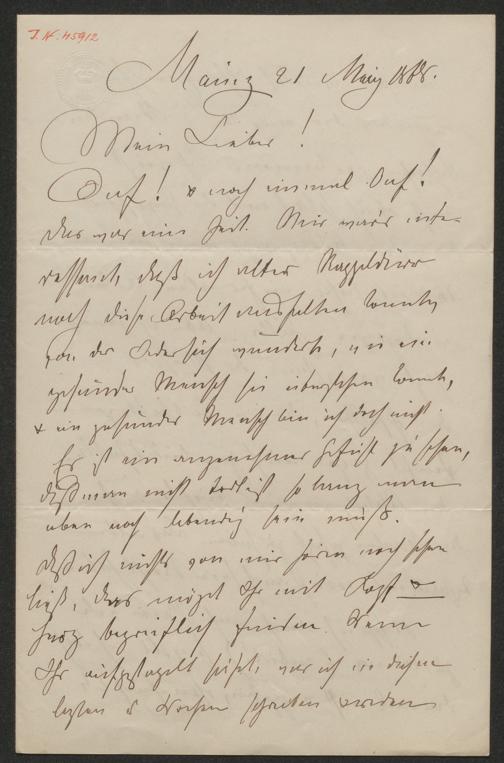 I.N. 45912
Mainz 21 März 1888.
Mein Lieber!
Ouf! & noch einmal Ouf!
Das war eine Zeit. Mir war's inte-
ressant, daß ich alter Krippeldürr
noch diese Arbeit aushalten konnte,
von der Jeder sich wunderte, wie ein
gesunder Mensch sie überstehen konnte,
& ein gesunder Mensch bin ich doch nicht.
Es ist ein angenehmes Gefühl zu sehen,
daß man nicht todt ist so lang man
eben noch lebendig sein muß.
Daß ich nichts von mir hören noch sehen
ließ, das mögt Ihr mit Kopf &
Herz begreiflich finden. Wenn
Ihr aufgestapelt seht, was ich in diesen
letzten 8 Wochen schreiben